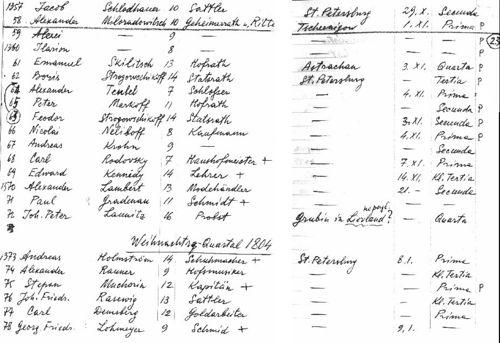 1357 Jacob Schlodhauer 10 Sattler St. Petersburg 29. X. Secunda
58 Alexander Miloradowitsch 10 Geheimrath u. Ritt. Tschernigow 1. XI. Prima ?
59 Alexei — 9 — — Prima ?
1360 Ilarion 8 — — — ?
61 Emanuel Skilitsch 13 Hofrath Astrachan 3. XI. Quarta ?
62 Boris Strogowschikoff 14 Statsrath St. Petersburg Tertia ?
Alexander Teubel 7 Schlosser — 4. XI. Prima
Peter Markoff 11 Hofrath — Secunda ?
Feodor Strogowschikoff 14 Statsrath — 3. XI. Secunda ?
66 Nicolai Neliboff 8 Kaufmann — 4. XI. Prima ?
67 Andreas Krohn 9 — — Secunda
68 Carl Rodovsky 7 Haushofmeister + — 7. XI. Prima
69 Edward Kennedy 14 Lehrer + — 14. XI. Kl. Tertia
1370 Alexander Lambert 13 Modehändler — 21. - Secunda
71 Paul Gradenau 11 Schmidt +
72 Joh. Peter Launitz 16 Probst Grubin in Livland ? — Quarta
Weihnachts-Quartal 1804
1373 Andreas Holmström 14 Schuhmacher + St. Petersburg 8.1. Prima
74 Alexander Rauner 9 Hofmusiker — Kl. Tertia
75 Stepan Muchorin 12 Kapitän + — Prima
76 Joh. Friedr. Rasewig 13 Sattler — Kl. Tertia
77 Carl Demsberg 12 Goldarbeiter — — Prima
78 Georg Friedr. Lohmeyer 9 Schmid + — 9.1. — Prima
23